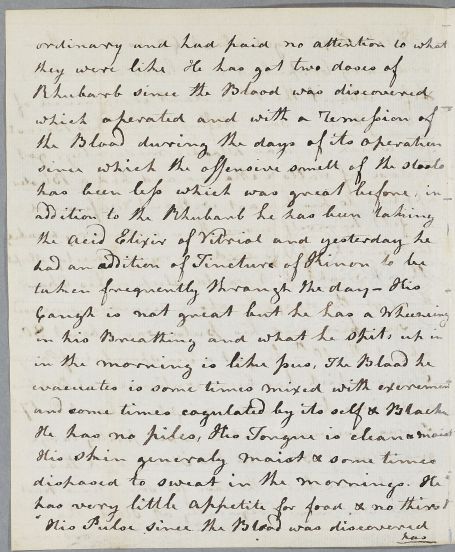 ordinary and had paid no attention to what
they were like He has got two doses of
Rhubarb since the Blood was discovered
which operated and with a Remission of
the Blood durring the days of its operation
since which the offensive smell of the stools
has been less which was great before, in
addition to the Rhubarb he has been taking
the acid Elixir of Vitriol and yesterday he
had an addition of Tincture of Kinon to be
taken frequently through the day - His
Cough is not great but he has a Wheesing
in his Breathing and what he spits up in
in the morning is like pus, The Blood he
evacuates is some times mixed with excrement
and some times coagulated by its self & Black
He has no piles, His Tongue is clean & moist
His skin generaly moist & some times
disposed to sweat in the mornings. He
has very little appetite for food & no thirst
His Pulse since the Blood was discovered
has